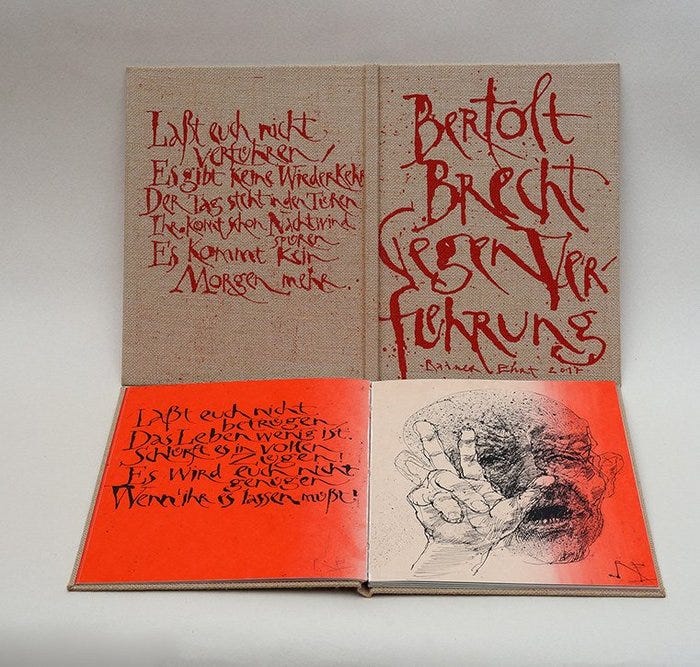 Laßt euch nicht
verführen!
Es gibt keine Wiederkehr
Der Tag steht in den Türen
Ihr könnt schon Nachtwind
spüren
Es kommt kein
Morgen mehr.
Bertolt
Brecht
Gegen Ver-
führung
Rainer Ehrt 2017
Laßt euch nicht
betrügen
Das Leben wenig ist.
Schlürft es in vollen
Zügen!
Es wird euch nicht
genügen
Wenn ihr es lassen müßt!